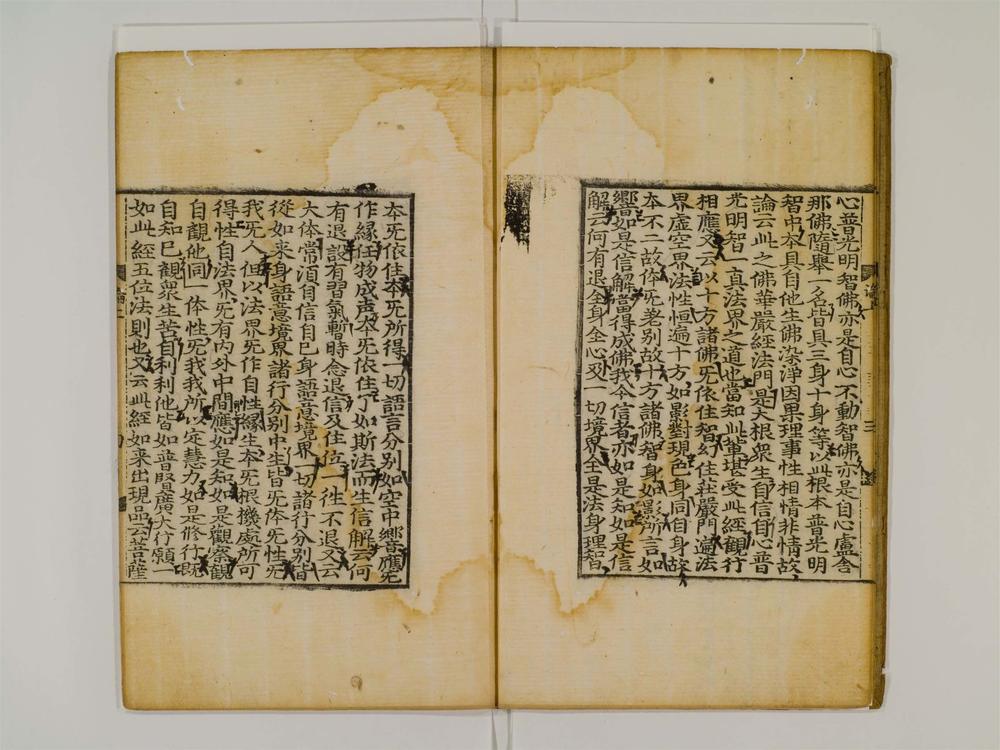 心普光明智佛亦是自心不動智佛亦是自心盧舍
那佛隨舉一名皆具三身十身等以此根本普光明
智中本具自他生佛染淨因果理事性相情非情故
論云此之佛華嚴經法門是大根衆生自信自心普
光明智一真法界之道也當知此輩堪受此經觀行
相應又云以十方諸佛旡依住智幻住莊嚴門遍法
界虛空界法性恒遍十方如影對現色身同自身故
本不二故体旡差别故十方諸佛智身如影所言如
響如是信解當得成佛我今信者亦如是知如是信
解云何有退全身全心及一切境界全是法身理智
本旡依住本旡所得一切語言分别如空中響應旡
作緣任物成声本旡依住了如斯法而生信解云何
有退設有習氣暫時念退信及住位一徃不退又云
大体常須自信自己身語意境界一切諸行分别皆
從如来身語意境界諸行分别中生皆旡体旡性旡
我旡人但以法界旡作自性緣生本旡根機處所可
得性自法界旡有内外中間應如是知如是觀察觀
自觀他同一体性旡我我所以定慧力如是修行旣
自知已觀衆生苦自利利他皆如普賢廣大行願一
如此經五位法則也又云此經如来出現品云菩薩